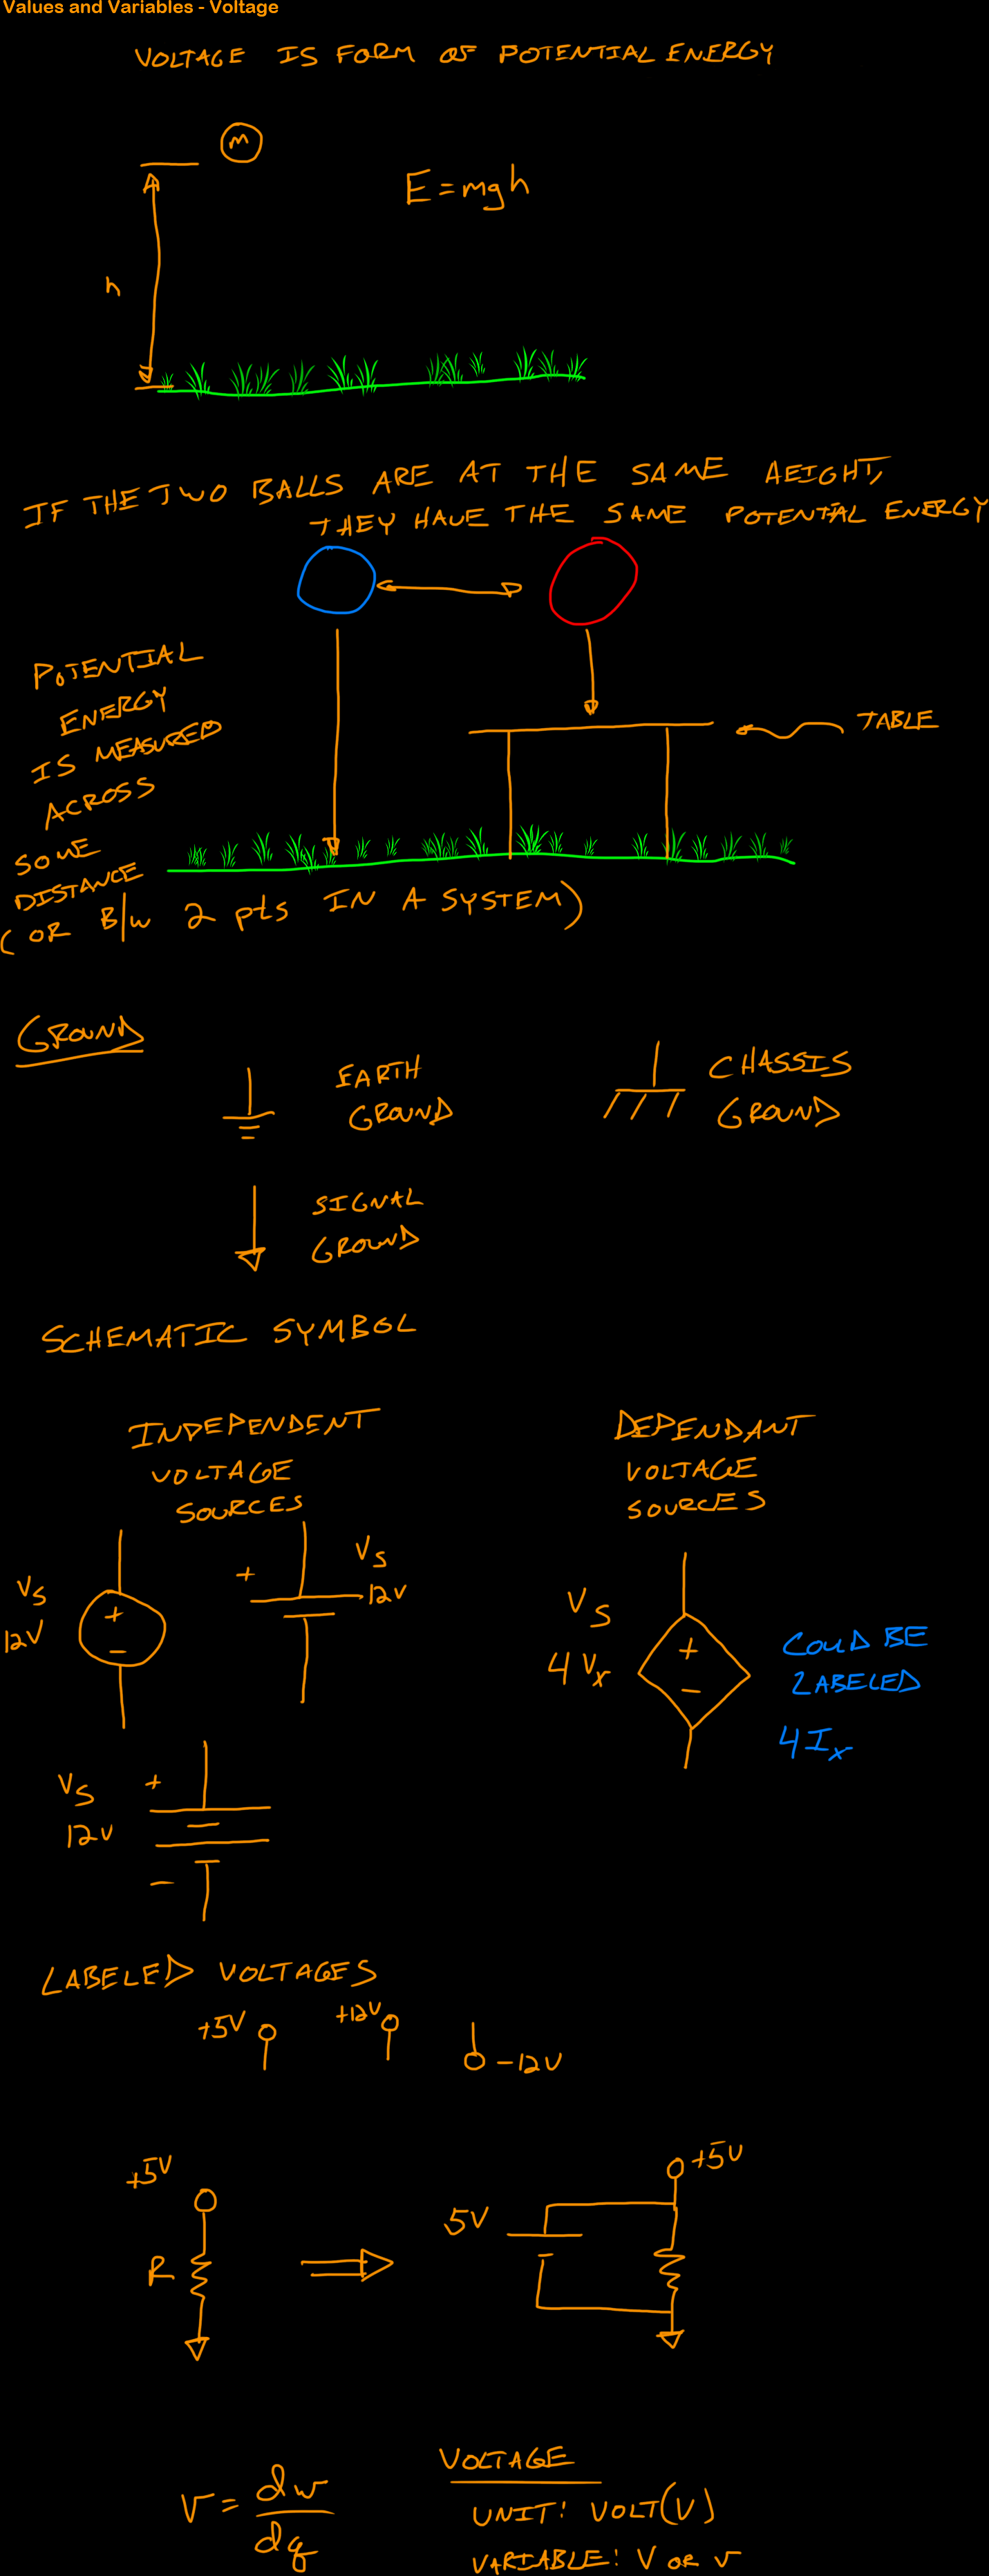 Values and Variables - Voltage
VOLTAGE IS FORM OF POTENTIAL ENERGY
m
E = mgh
h
IF THE TWO BALLS ARE AT THE SAME HEIGHT,
THEY HAVE THE SAME POTENTIAL ENERGY
POTENTIAL
ENERGY
IS MEASURED
ACROSS
SOME
DISTANCE
(OR B/W 2 pts IN A SYSTEM)
TABLE
GROUND
EARTH
GROUND
CHASSIS
GROUND
SIGNAL
GROUND
SCHEMATIC SYMBOL
INDEPENDENT
VOLTAGE
SOURCES
DEPENDANT
VOLTAGE
SOURCES
Vs
12V
+
-
+
Vs
12V
Vs
4Vx
+
-
COULD BE
LABELED
4Ix
Vs
12V
+
-
LABELED VOLTAGES
+5V
+12V
-12V
+5V
R
5V
+5V
v = dw/dq
VOLTAGE
UNIT: VOLT(V)
VARIABLE: V OR v